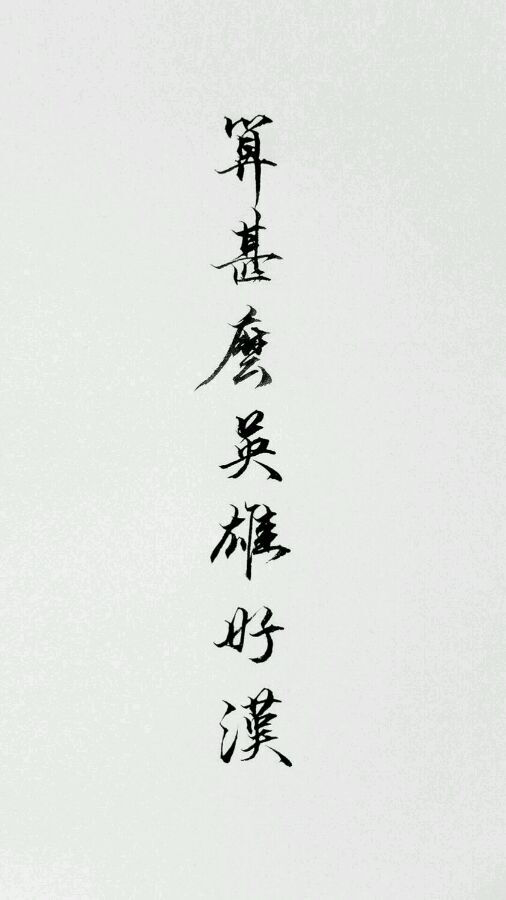 算甚麽英雄好漢